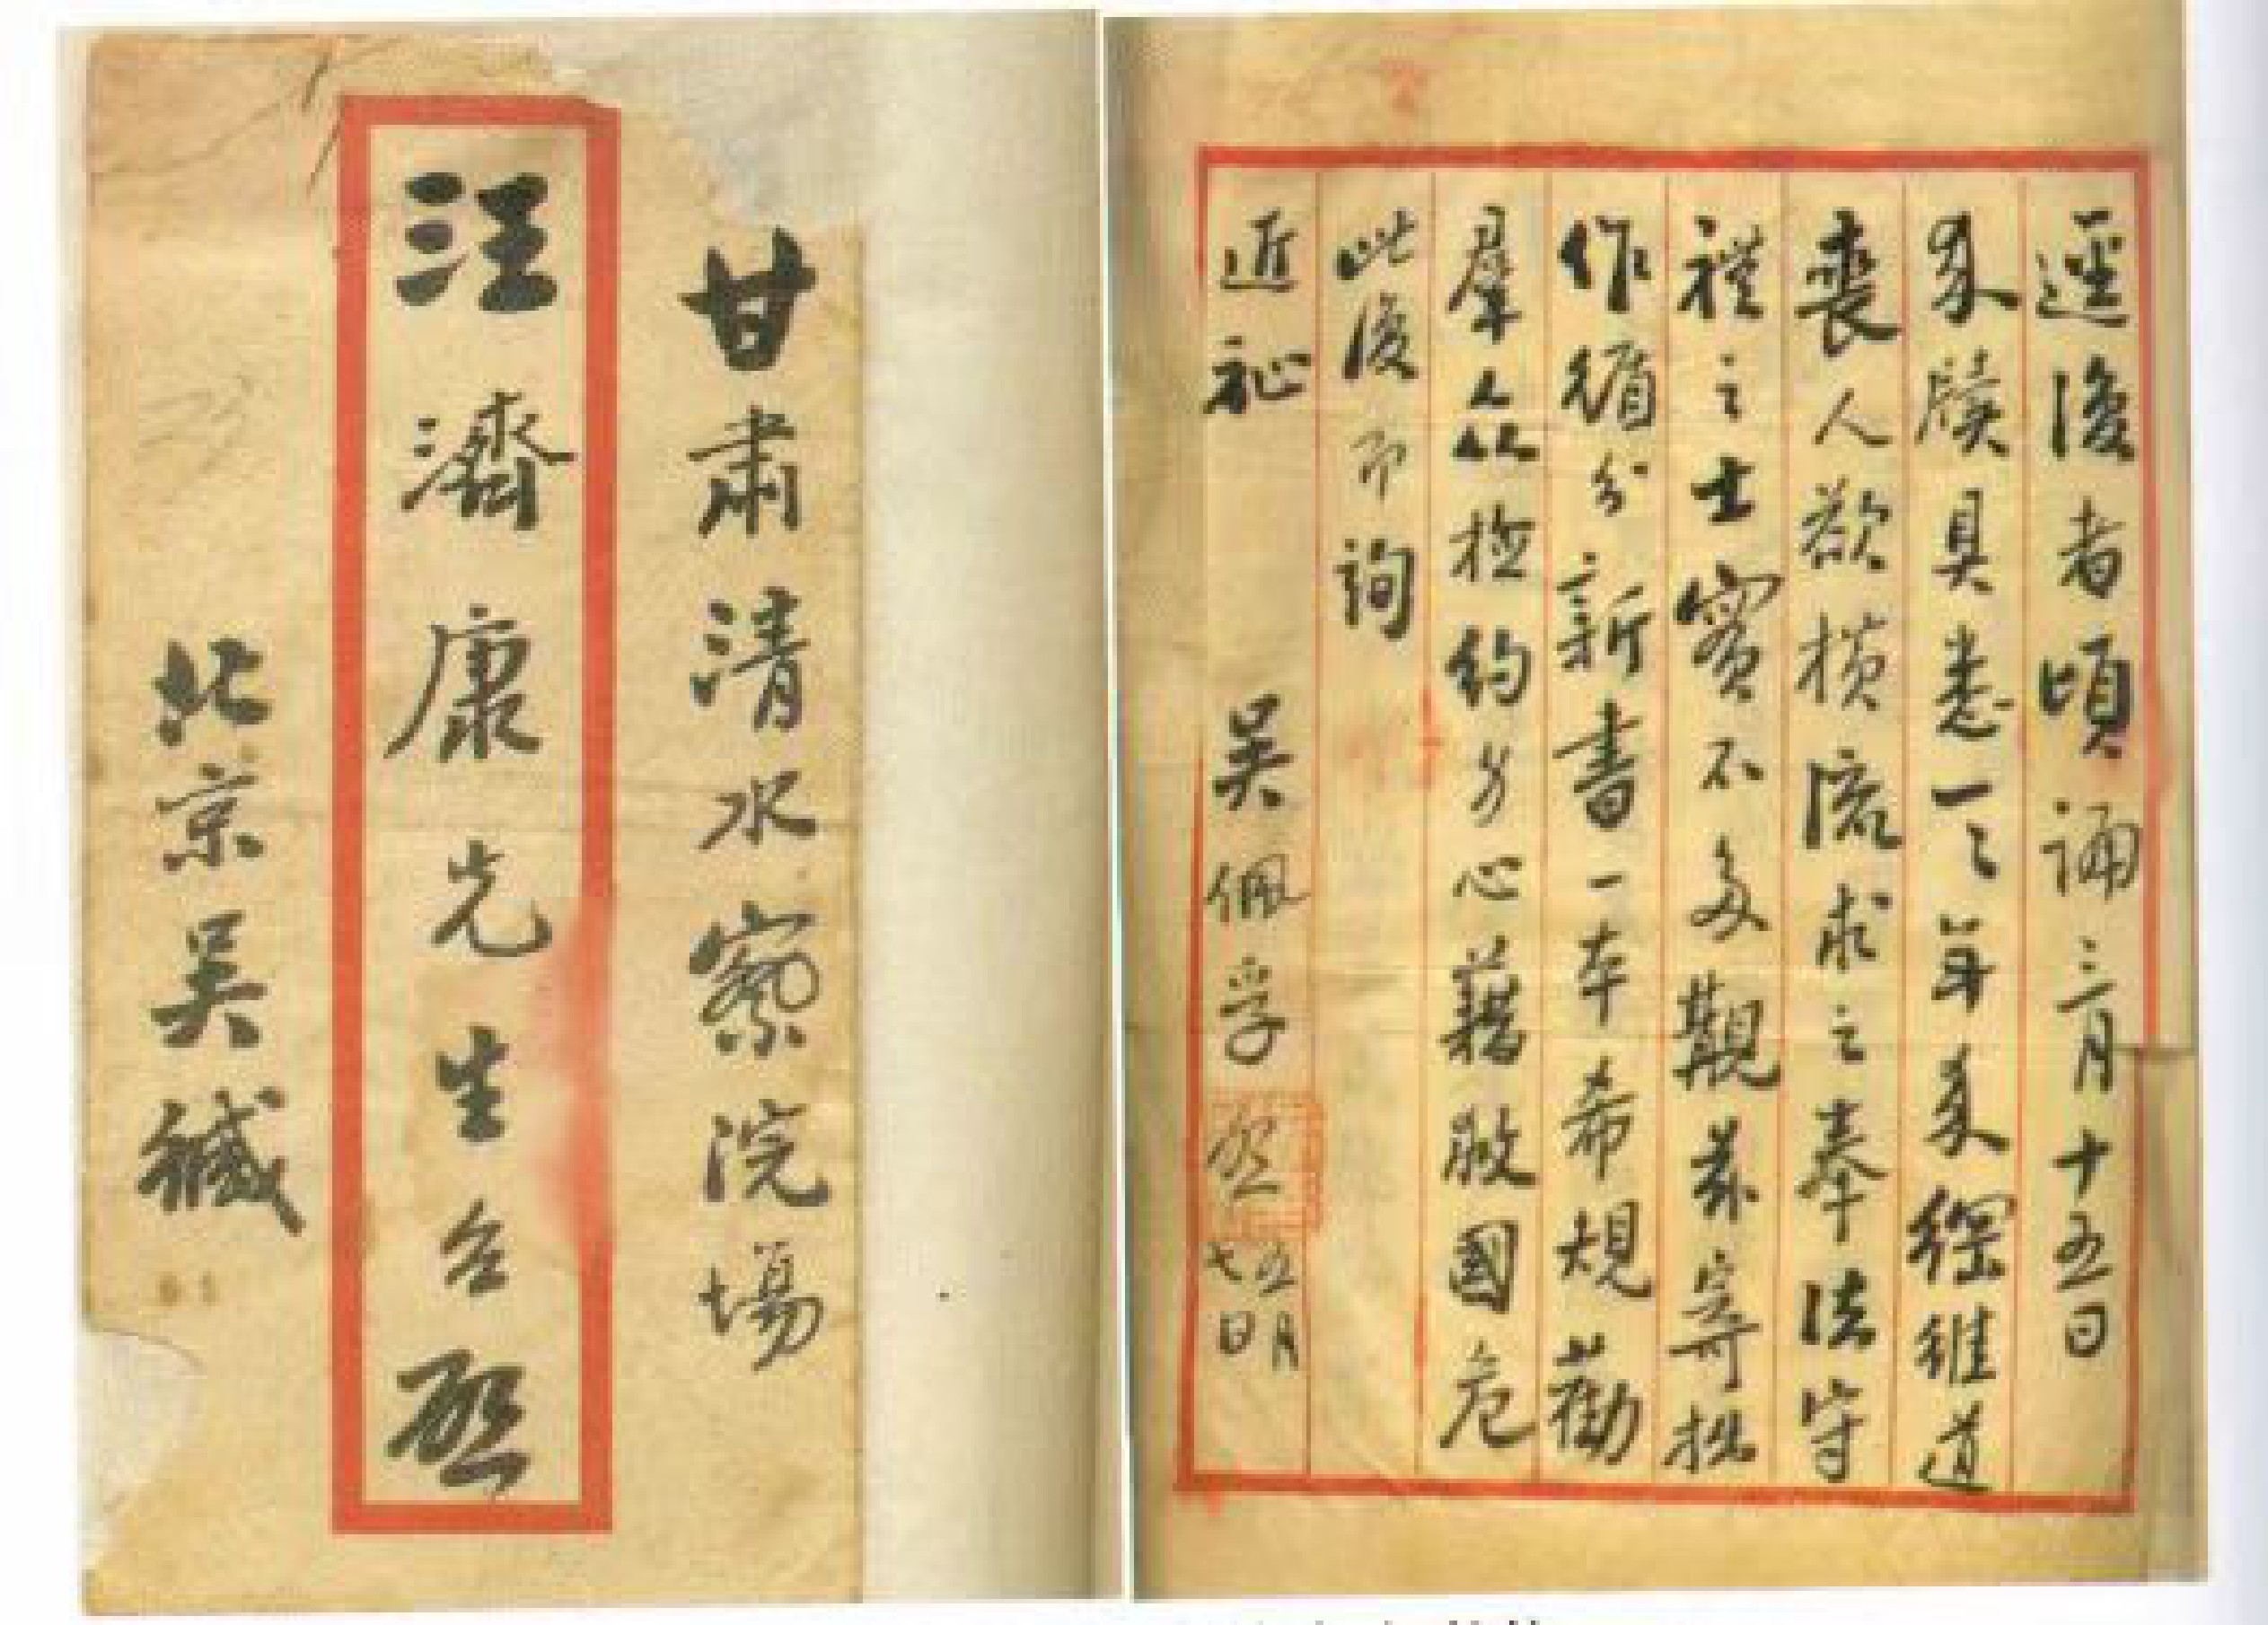 甘肅清水察院場
汪濟康先生台啟
北京吳緘
逕復者頃誦三月十五日
來牘具悉一一年來綱維道
喪人欲橫流求之奉法守
禮之士實不多觀茲寄拙
作循分新書一本希規勸
羣众檢約身心藉救國危
此復即詢
近祉
吳佩孚啟五月七日